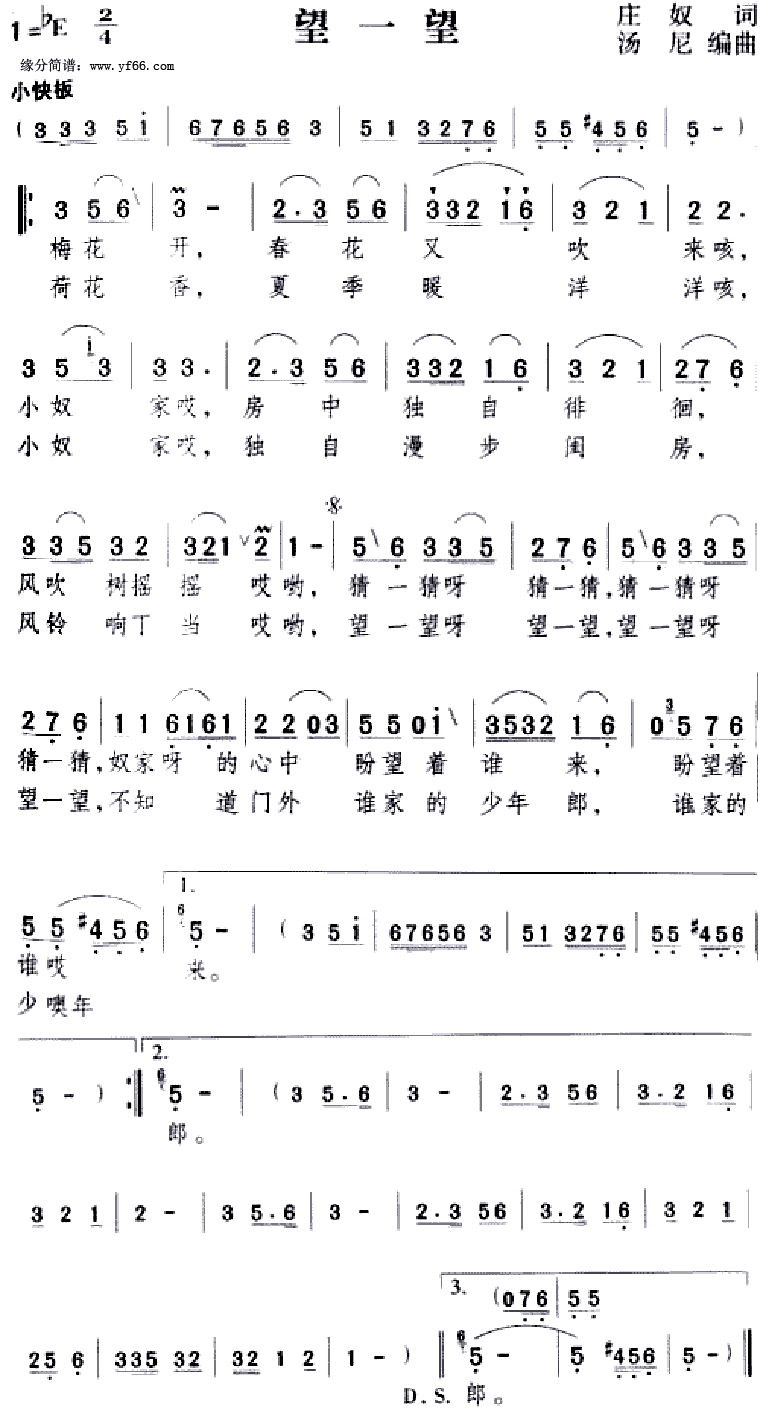 1=♭E 2/4 望一望 庄奴 词
汤尼 编曲
缘分简谱：www.yf66.com
小快板
(3 3 3 5 i | 6 7 6 5 6 3 | 5 1 3 2 7 6 | 5 5 #4 5 6 | 5 - )
3 5 6 | 3 - | 2. 3 5 6 | 3 3 2 1 6 | 3 2 1 | 2 2.
梅花 开， 春花又 吹 来咳，
荷花 香， 夏季暖 洋 洋咳，
3 5 i 3 | 3 3. | 2. 3 5 6 | 3 3 2 1 6 | 3 2 1 | 2 7 6
小奴 家哎，房中独自徘徊，
小奴 家哎，独自漫步闺房，
3 3 5 3 2 | 3 2 1 2 | 1 - | 5 6 3 3 5 | 2 7 6 | 5 6 3 3 5
风吹 树摇 摇 哎哟，猜一猜呀 猜一猜，猜一猜呀
风铃 响丁 当 哎哟，望一望呀 望一望，望一望呀
2 7 6 | 1 1 6 1 6 1 | 2 2 0 3 | 5 5 0 i | 3 5 3 2 1 6 | 0 3 5 7 6
猜一猜，奴家呀 的心中 盼望着 谁 来， 盼望着
望一望，不知 道门外 谁家的 少年 郎， 谁家的
1.
5 5 #4 5 6 | 6 5 - | (3 5 i | 6 7 6 5 6 3 | 5 1 3 2 7 6 | 5 5 #4 5 6
谁哎 来。
少噢年
2.
5 - ) :‖ 6 5 - | (3 5. 6 | 3 - | 2. 3 5 6 | 3. 2 1 6
郎。
3 2 1 | 2 - | 3 5. 6 | 3 - | 2. 3 5 6 | 3. 2 1 6 | 3 2 1
3. (0 7 6 | 5 5
2 5 6 | 3 3 5 3 2 | 3 2 1 2 | 1 - ) ‖ 6 5 - | 5 #4 5 6 | 5 - ) ‖
D.S. 郎。